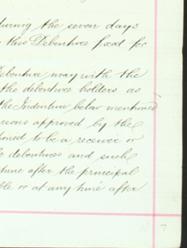 during the seven days
this Debenture fixed for
Debenture may with the
the debenture holders as
the Indenture below mentioned
persons approved by the
to be a receiver or
debentures and such
after the principal
or at any time after